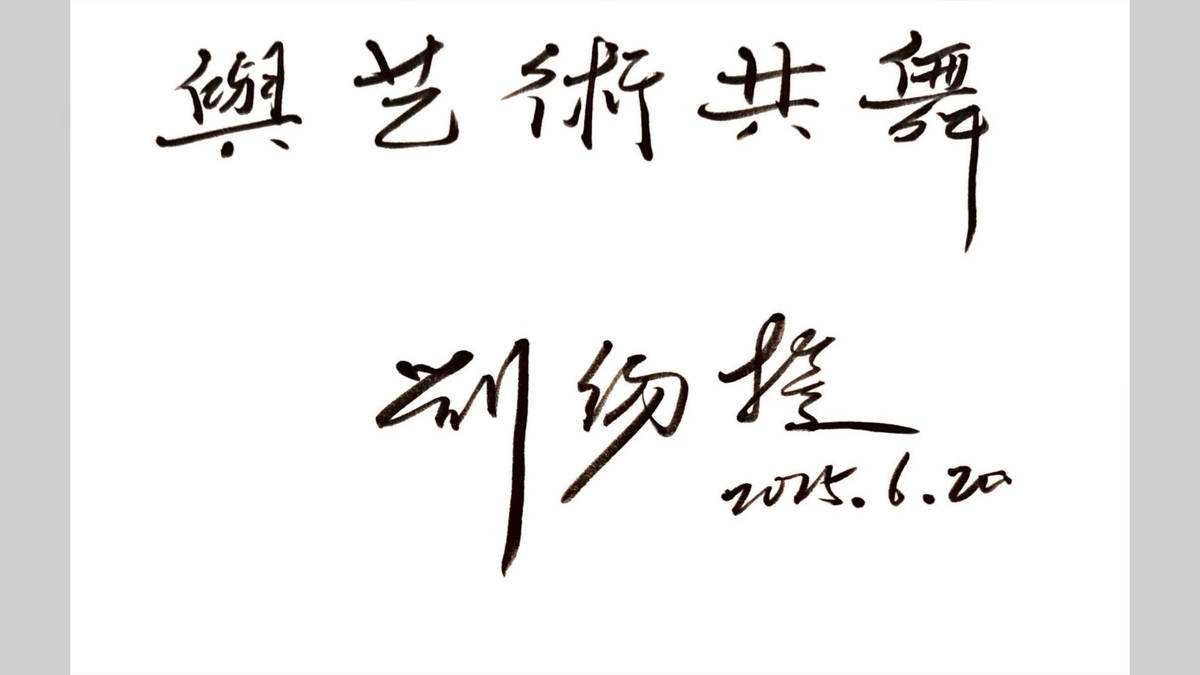 與艺術共舞
2025.6.20